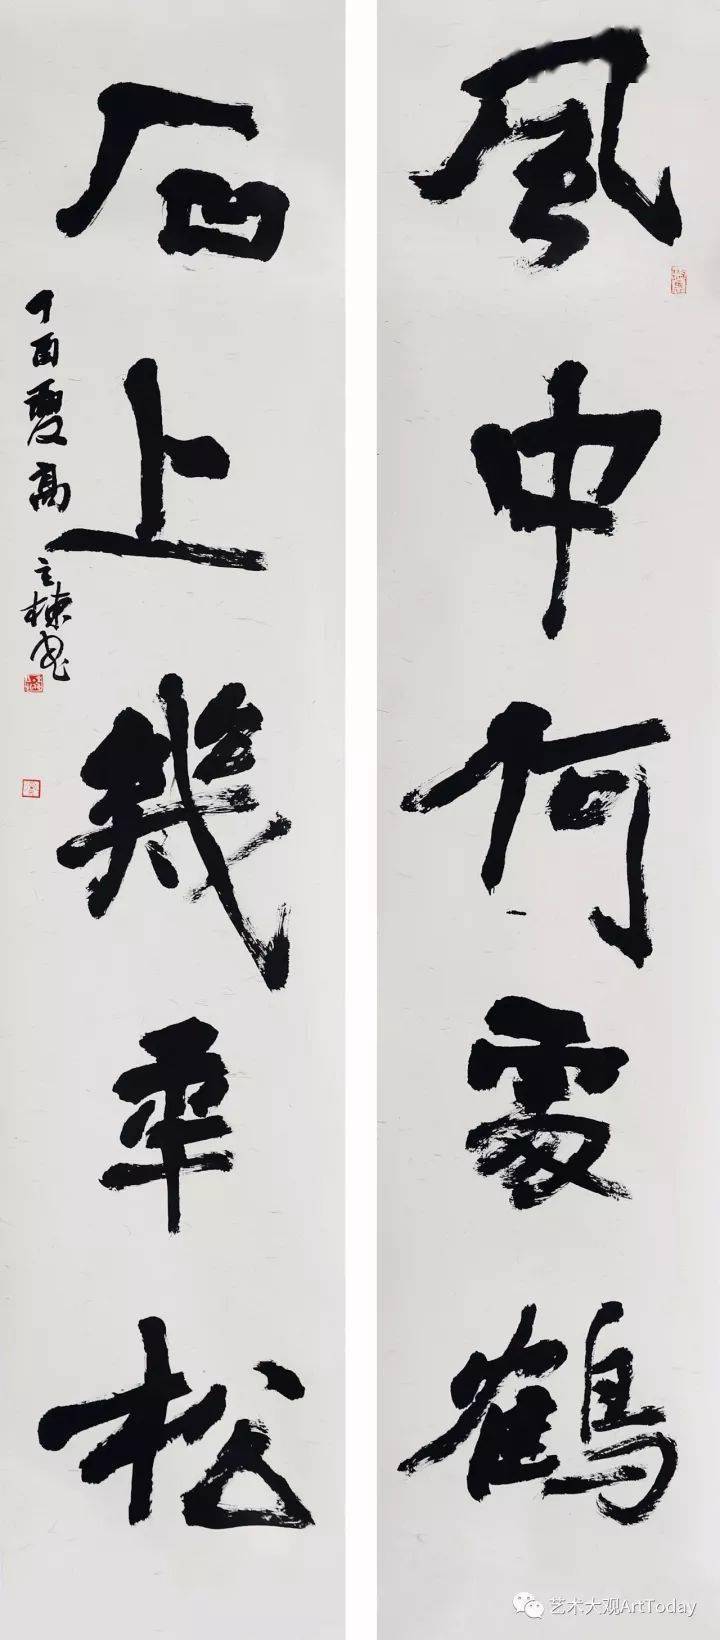 風中何處鶴
石上幾年松
丁酉夏高立棟書
艺术大观ArtToday